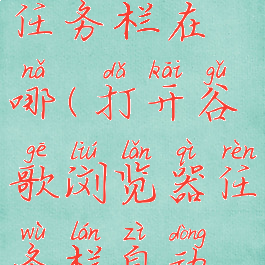 任务栏在
nǎ dǎ kāi gǔ
哪(打开谷
gē liú lǎn qì rèn
歌浏览器任
wù lán zì dòng
务栏自动